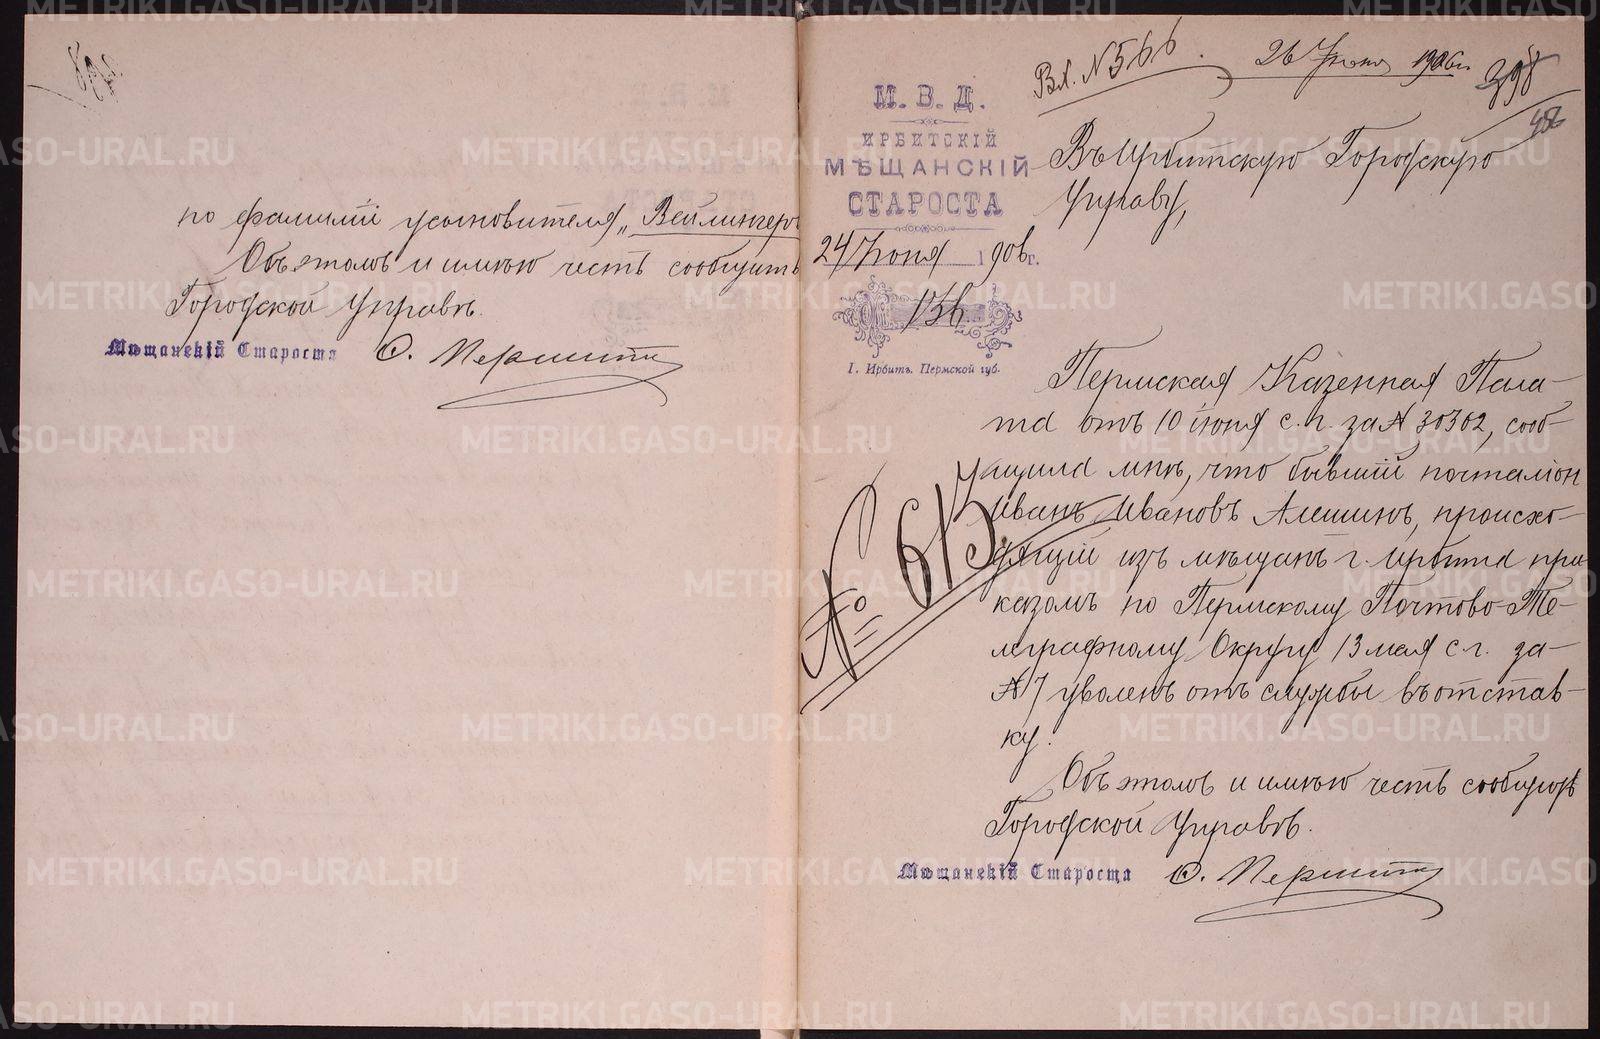 по фамиліи усыновителя „Вейлингеръ
Объ этомъ и имѣю честь сообщить
Городской Управѣ.
Мѣщанскій Староста
Вх. № 566. 26 Іюня 1906 г. 398
М. В. Д.
ИРБИТСКІЙ
МѢЩАНСКІЙ
СТАРОСТА
24 Іюня 1906 г.
136.
г. Ирбитъ, Пермской губ.
Въ Ирбитскую Городскую
Управу,
№ 615.
Пермская Казенная Пала-
та отъ 10 іюня с. г. за № 30362, сооб-
щила мнѣ, что бывшій почталіон
Иванъ Ивановъ Алешинъ, происхо-
дящій изъ мѣщанъ г. Ирбита при-
казомъ по Пермскому Почтово-Те-
леграфному Округу 13 мая с. г. за-
№ 7 уволенъ отъ службы въ отстав-
ку.
Объ этомъ и имѣю честь сообщить
Городской Управѣ.
Мѣщанскій Староста
METRIKI.GASO-URAL.RU